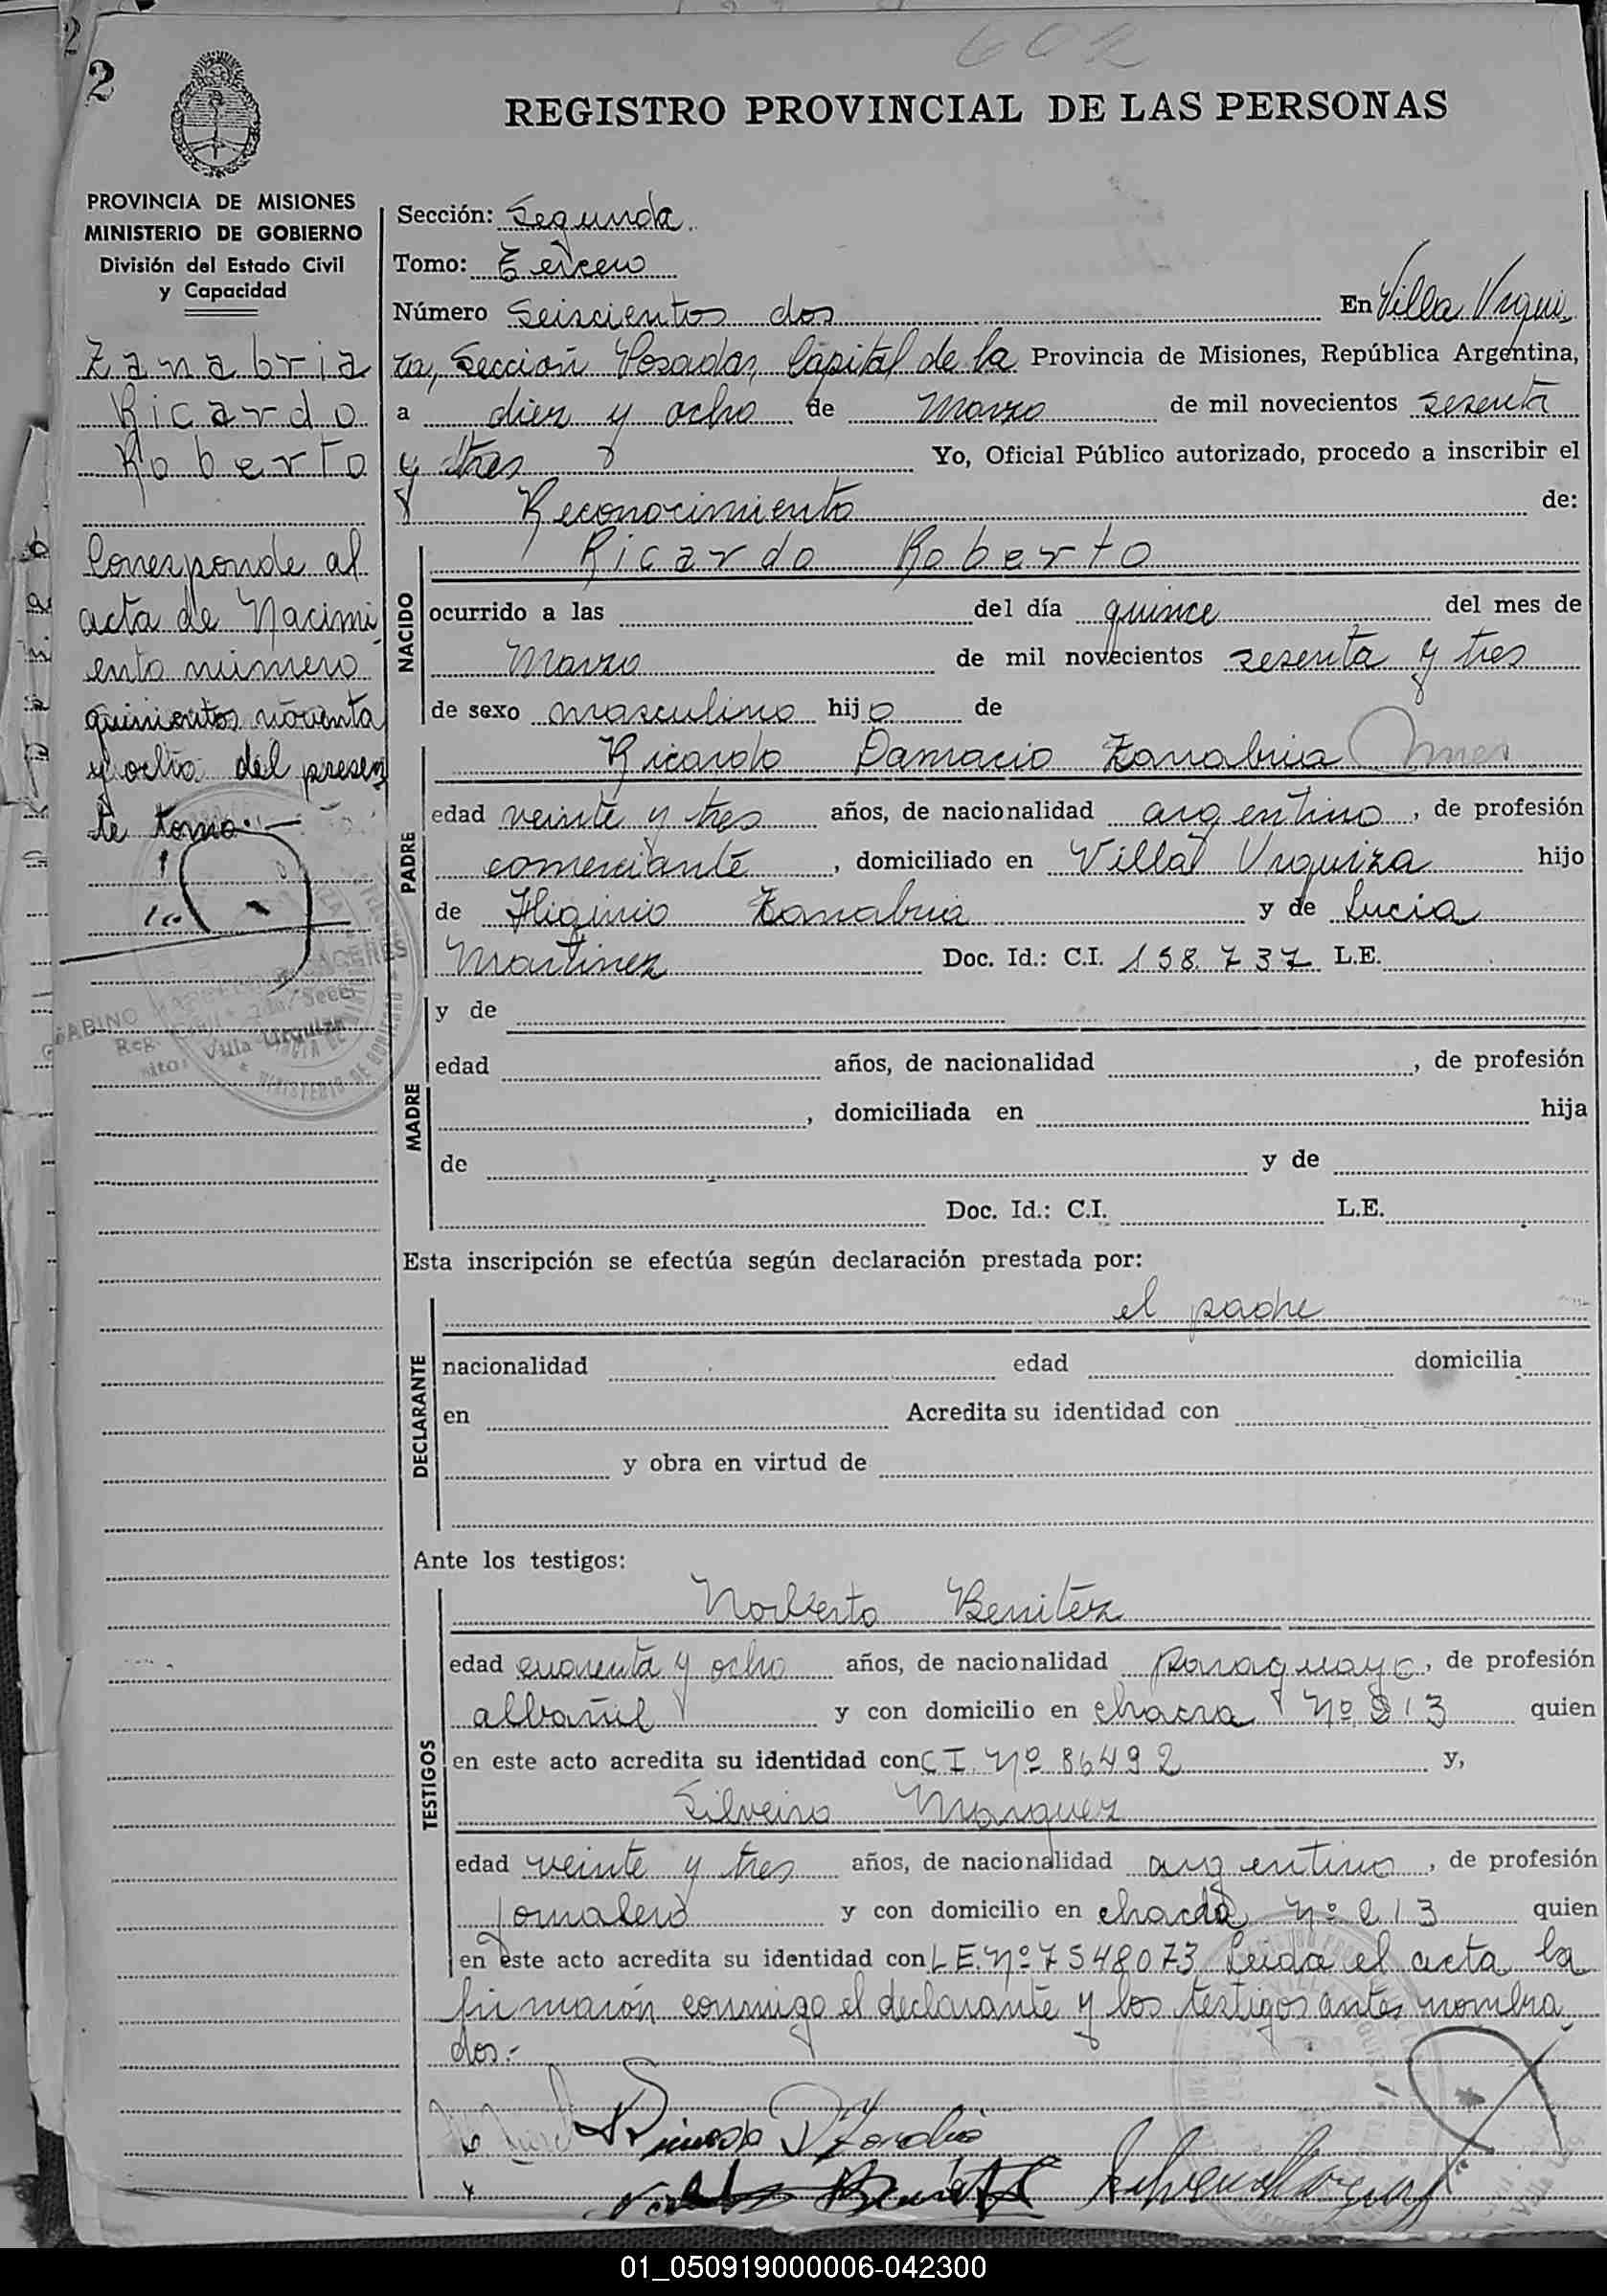 602
2
REGISTRO PROVINCIAL DE LAS PERSONAS
PROVINCIA DE MISIONES
MINISTERIO DE GOBIERNO
División del Estado Civil
y Capacidad
Zanabria
Ricardo
Roberto
Corresponde al
acta de Nacimi
ento número
quinientos noventa
y ocho del presen
te tomo.-
Sección: Segunda.
Tomo: Tercero
Número Seiscientos dos En Villa Urqui
za, Sección Posadas, Capital de la Provincia de Misiones, República Argentina,
a diez y ocho de Marzo de mil novecientos sesenta
y tres Yo, Oficial Público autorizado, procedo a inscribir el
Reconocimiento de:
NACIDO
Ricardo Roberto
ocurrido a las del día quince del mes de
Marzo de mil novecientos sesenta y tres
de sexo masculino hijo de
PADRE
Ricardo Damacio Zanabria
edad veinte y tres años, de nacionalidad argentino, de profesión
comerciante, domiciliado en Villa Urquiza hijo
de Higinio Zanabria y de Lucia
Martinez Doc. Id.: C.I. 158.737 L.E.
MADRE
y de
edad años, de nacionalidad , de profesión
, domiciliada en hija
de y de
Doc. Id.: C.I. L.E.
Esta inscripción se efectúa según declaración prestada por:
DECLARANTE
el padre
nacionalidad edad domicilia
en Acredita su identidad con
y obra en virtud de
Ante los testigos:
TESTIGOS
Norberto Benitez
edad cuarenta y ocho años, de nacionalidad paraguayo, de profesión
albañil y con domicilio en chacra Nº 213 quien
en este acto acredita su identidad con C I. Nº 86492 y,
Silveiro Marquez
edad veinte y tres años, de nacionalidad argentino, de profesión
jornalero y con domicilio en chacra nº 213 quien
en este acto acredita su identidad con L E. Nº 7548073 Leida el acta la
firmarón conmigo el declarante y los testigos antes nombra
dos.-
01_050919000006-042300